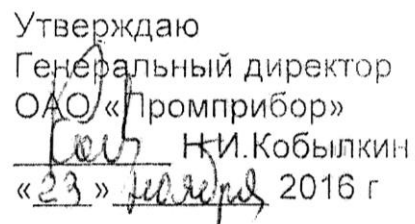 Утверждаю
Генеральный директор
ОАО «Промприбор»
Н.И.Кобылкин
«23» ноября 2016 г